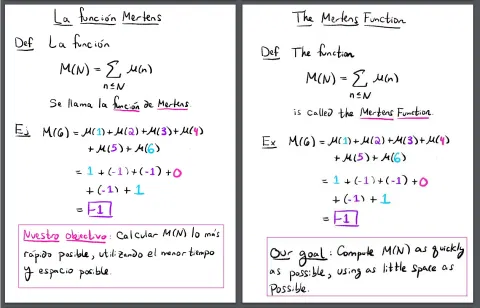 La función Mertens
Def La función
M(N) = ∑ μ(n)
n≤N
Se llama la función de Mertens.
Ej M(6) = μ(1)+μ(2)+μ(3)+μ(4)
+ μ(5) + μ(6)
= 1 + (-1) + (-1) + 0
+ (-1) + 1
= -1
Nuestro objectivo: Calcular M(N) lo más
rápido posible, utilizando el menor tiempo
y espacio posible.
The Mertens Function
Def The function
M(N) = ∑ μ(n)
n≤N
is called the Mertens Function.
Ex M(6) = μ(1)+μ(2)+μ(3)+μ(4)
+ μ(5) + μ(6)
= 1 + (-1) + (-1) + 0
+ (-1) + 1
= -1
Our goal: Compute M(N) as quickly
as possible, using as little space as
possible.